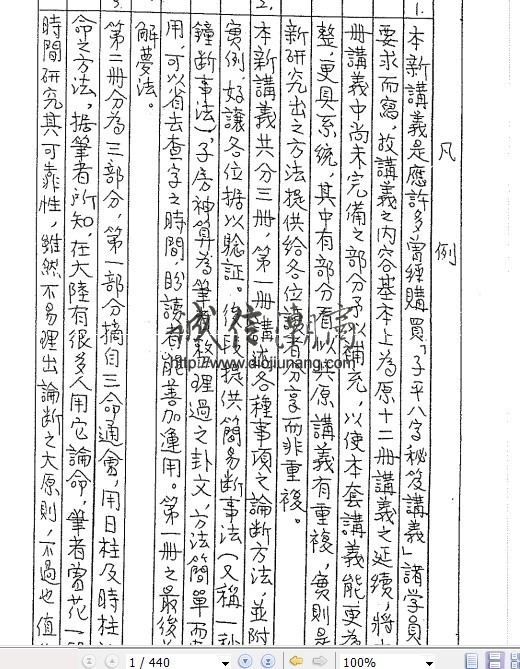 凡例
1. 本新講義是應許多曾經購買「子平八字秘笈講義」諸學員
要求而寫，故講義之內容基本上為原十二冊講義之延續，將
冊講義中尚未完備之部分予以補充，以使本套講義能更為
整，更具系統，其中有部分看似與原講義有重複，實則是
新研究出之方法提供給各位讀者分享而非重複。
2. 本新講義共分三冊，第一冊講述各種事項之論斷方法，並附
實例，好讓各位据以驗証。後段提供簡易斷事法（又稱一
鐘斷事法），子房神算為筆者整理過之卦文，方法簡單而
用，可以省去查字之時間，盼讀者能善加運用。第一冊之最後
解夢法。
3. 第二冊分為三部分，第一部分摘自三命通會，用日柱及時柱
命之方法，据筆者所知，在大陸有很多人用它論命，筆者曾花一
時間研究其可靠性，雖然不易理出論斷之大原則，不過也值
诚信
http://www.diojiunang.com
1 / 440
100%